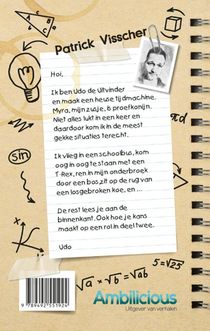 Patrick Visscher
Hoi,
Ik ben Udo de Uitvinder
en maak een heuse tijdmachine.
Myra, mijn zusje, is proefkonijn.
Niet alles lukt in een keer en
daardoor kom ik in de meest
gekke situaties terecht.
Ik vlieg in een schoolbus, kom
oog in oog te staan met een
T-Rex, ren in mijn onderbroek
door een bos, zit op de rug van
een losgebroken koe, en ...
De rest lees je aan de
binnenkant. Ook hoe je kans
maakt op een rol in deel twee.
Udo
sin
πd
5=√25
√a × √b = √ab
Ambilicious
Uitgever van verhalen
9 789492 551924